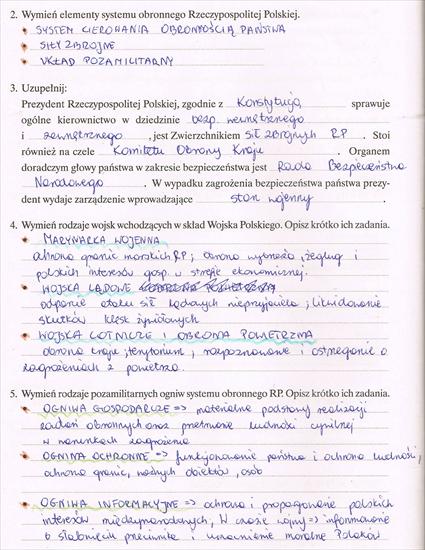 2. Wymień elementy systemu obronnego Rzeczypospolitej Polskiej.
• SYSTEM KIEROWANIA OBRONNOŚCIĄ PAŃSTWA
• SIŁY ZBROJNE
• UKŁAD POZAMILITARNY
3. Uzupełnij:
Prezydent Rzeczypospolitej Polskiej, zgodnie z Konstytucją sprawuje
ogólne kierownictwo w dziedzinie bezp. wewnętrznego
i zewnętrznego , jest Zwierzchnikiem sił zbrojnych RP . Stoi
również na czele Komitetu Obrony Kraju . Organem
doradczym głowy państwa w zakresie bezpieczeństwa jest Rada Bezpieczeństwa
Narodowego . W wypadku zagrożenia bezpieczeństwa państwa prezy-
dent wydaje zarządzenie wprowadzające stan wojenny .
4. Wymień rodzaje wojsk wchodzących w skład Wojska Polskiego. Opisz krótko ich zadania.
• MARYNARKA WOJENNA
ochrona granic morskich RP; obrona wybrzeża, żeglugi i
polskich interesów gosp. w strefie ekonomicznej.
• WOJSKA LĄDOWE
odparcie ataku sił lądowych nieprzyjaciela; likwidowanie
skutków klęsk żywiołowych
• WOJSKA LOTNICZE i OBRONA POWIETRZNA
obrona kraju, terytorium, rozpoznawanie i ostrzeganie o
zagrożeniach z powietrza.
5. Wymień rodzaje pozamilitarnych ogniw systemu obronnego RP. Opisz krótko ich zadania.
• OGNIWA GOSPODARCZE => materialne podstawy realizacji
zadań obronnych oraz przetrwanie ludności cywilnej
w warunkach zagrożenia
• OGNIWA OCHRONNE => funkcjonowanie państwa i ochrona ludności,
ochrona granic, ważnych obiektów, osób
• OGNIWA INFORMACYJNE => ochrona i propagowanie polskich
interesów międzynarodowych, w czasie wojny => informowanie
o słabościach przeciwnika i umacnianie morale Polaków